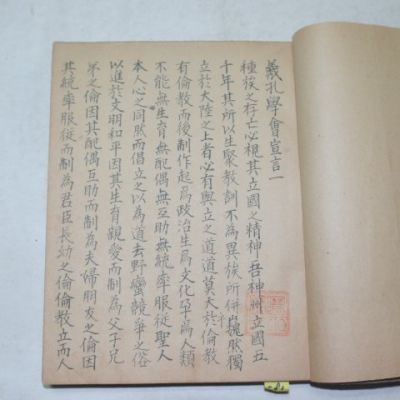 義孔學會宣言一
種族之存亡必視其立國之精神吾神州立國五
千年其所以生聚教訓不為異族所併巍然獨
立於大陸之上者必有與立之道道莫大於倫教
有倫教而後制作起為政治生為文化孕為人類
不能無生育無配偶無互助無統率服從聖人
本人心之同然而倡立之以為道去野蠻競爭之俗
以進於文明和平因其生育親愛而制為父子兄
弟之倫因其配偶互助而制為夫婦朋友之倫因
其統率服從而制為君臣長幼之倫倫教立而人